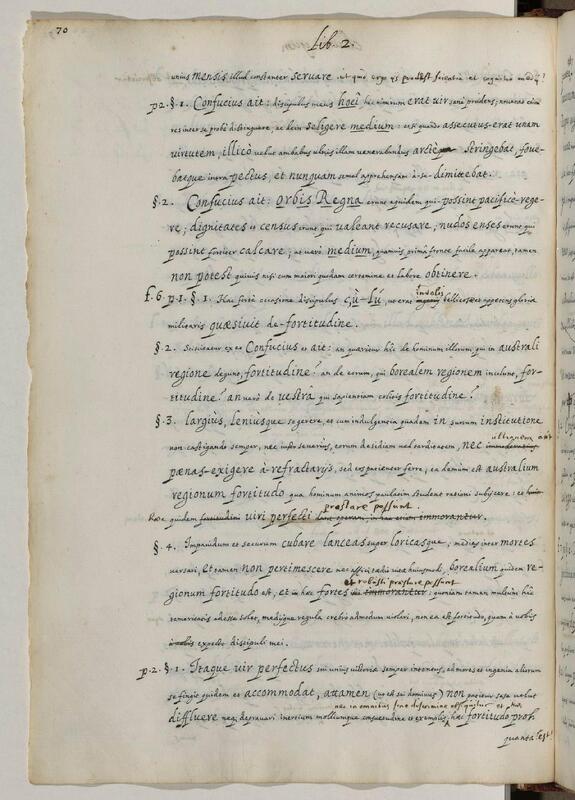 70
Lib. 2.
unius mensis illud constanter servare
p. 2. §. 1. Confucius ait: discipulus meus hoêi hic nimirum erat vir sanè prudens; noverat cùm
res inter se probè distinguere, ac dein seligere medium: est quando assecutus erat unam
virtutem, illicò velut ambabus ulnis illam venerabundus arctè stringebat, fove-
batque intra pectus, et nunquam semel apprehensam à se dimittebat.
§. 2. Confucius ait: Orbis Regna erunt equidem qui possint pacificè rege-
re; dignitates et census erunt qui valeant recusare; nudos enses erunt qui
possint fortiter calcare; at verò medium, quamvis primâ fronte facile appareat, tamen
non potest quivis nisi cum maiori quodam certamine et labore obtinere.
f. 6. p. 1. §. 1. Hac fortè occasione discipulus çù-lú, ut erat indolis bellicosae et appetens gloriae
militaris quaesivit de fortitudine.
§. 2. Sciscitatur ex eo Confucius et ait: an quaeritur hîc de hominum illorum, qui in australi
regione degunt, fortitudine? an de eorum, qui borealem regionem incolunt, for-
titudine? an verò de vestrâ qui sapientiam colitis fortitudine?
§. 3. largius, leniusque se gerere, et cum indulgentia quadam in suorum institutione
non castigando semper, nec iusto severius, eorum desidiam vel tarditatem, nec
poenas exigere à refractarijs, sed eos patienter ferre, ea demum est australium
regionum fortitudo qua hominum animos paulatim student rationi subijcere: et
Hoc quidem viri perfecti praestare possunt.
§. 4. Impavidum et securum cubare lanceas super loricasque, medias inter mortes
versari, et tamen non pertimescere nec affici taedio vitae huiusmodi, borealium quidem re-
gionum fortitudo est, et hac fortes et robusti praestare possunt: quoniam tamen multum hîc
temeritatis adesse solet, mediique regula crebrò admodum violari, non ea est fortitudo, quam à vobis
expecto discipuli mei.
p. 2. §. 1. Itaque vir perfectus sui unius victoriae semper intentus, ad mores et ingenia aliorum
se fingit quidem et accommodat, attamen (ut est sui dominus) non patitur sese velut
nec in omnibus sine discrimine obsequitur et
diffluere neque depravari inertium molliumque consuetudine et exemplis; haec fortitudo proh
quanta est!